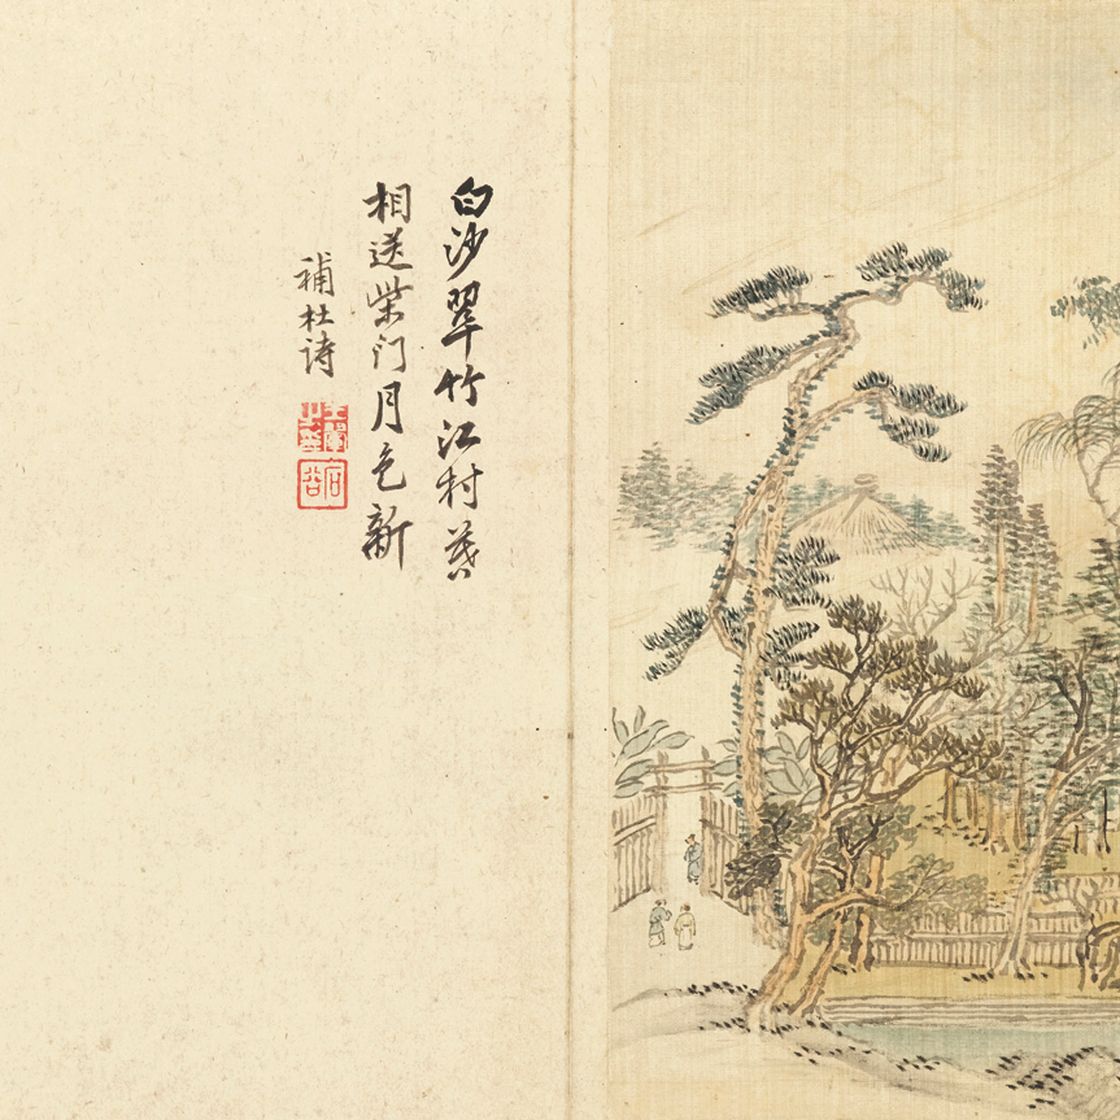 白沙翠竹江村暮
相送柴门月色新
補杜诗